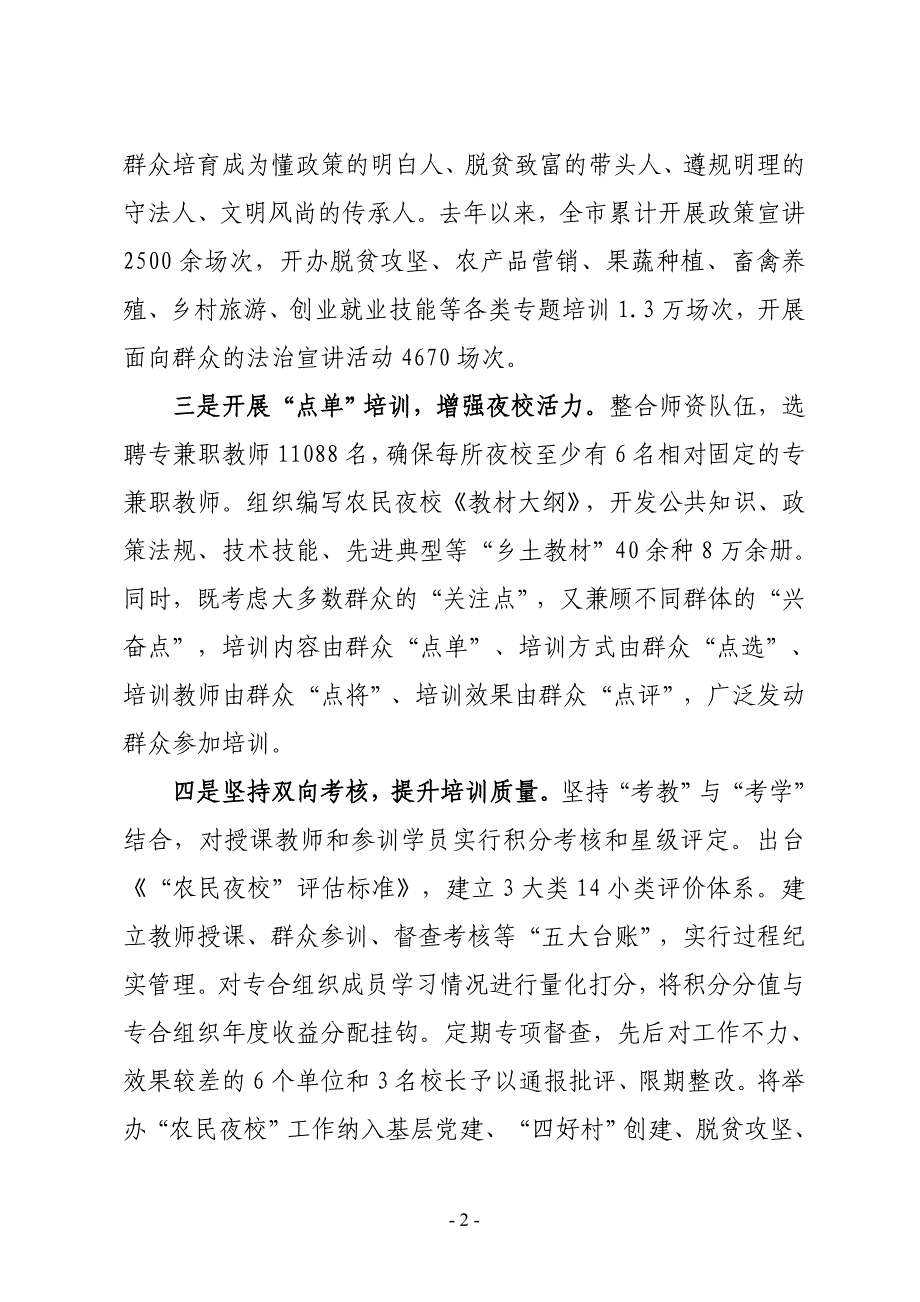 群众培育成为懂政策的明白人、脱贫致富的带头人、遵规明理的
守法人、文明风尚的传承人。去年以来，全市累计开展政策宣讲
2500 余场次，开办脱贫攻坚、农产品营销、果蔬种植、畜禽养
殖、乡村旅游、创业就业技能等各类专题培训 1.3 万场次，开展
面向群众的法治宣讲活动 4670 场次。
三是开展“点单”培训，增强夜校活力。整合师资队伍，选
聘专兼职教师 11088 名，确保每所夜校至少有 6 名相对固定的专
兼职教师。组织编写农民夜校《教材大纲》，开发公共知识、政
策法规、技术技能、先进典型等“乡土教材”40 余种 8 万余册。
同时，既考虑大多数群众的“关注点”，又兼顾不同群体的“兴
奋点”，培训内容由群众“点单”、培训方式由群众“点选”、
培训教师由群众“点将”、培训效果由群众“点评”，广泛发动
群众参加培训。
四是坚持双向考核，提升培训质量。坚持“考教”与“考学”
结合，对授课教师和参训学员实行积分考核和星级评定。出台
《“农民夜校”评估标准》，建立 3 大类 14 小类评价体系。建
立教师授课、群众参训、督查考核等“五大台账”，实行过程纪
实管理。对专合组织成员学习情况进行量化打分，将积分分值与
专合组织年度收益分配挂钩。定期专项督查，先后对工作不力、
效果较差的 6 个单位和 3 名校长予以通报批评、限期整改。将举
办“农民夜校”工作纳入基层党建、“四好村”创建、脱贫攻坚、
- 2 -